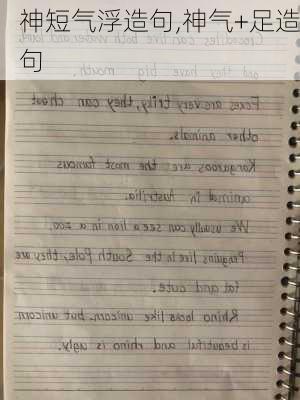 神短气浮造句,神气+足造
句
Crocodiles can live both water and land,
and they have big mouth.
Foxes are very triky, they can cheat
other animals.
Kangaroos are the most famous
animal in Austrilia.
We usually can see a lion in a zoo.
Penguins live in the South Pole, they are
fat and cute.
Rhino looks like unicorn, but unicorn
is beautiful and rhino is ugly.